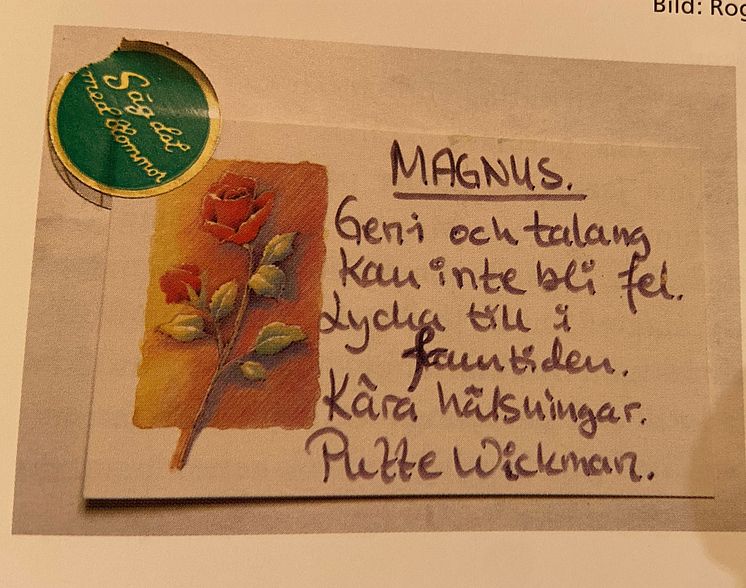 Bild: Rog
Säg det
med blommor
MAGNUS.
Geni och talang
kan inte bli fel.
Lycka till i
framtiden.
Kära hälsningar.
Putte Wickman.